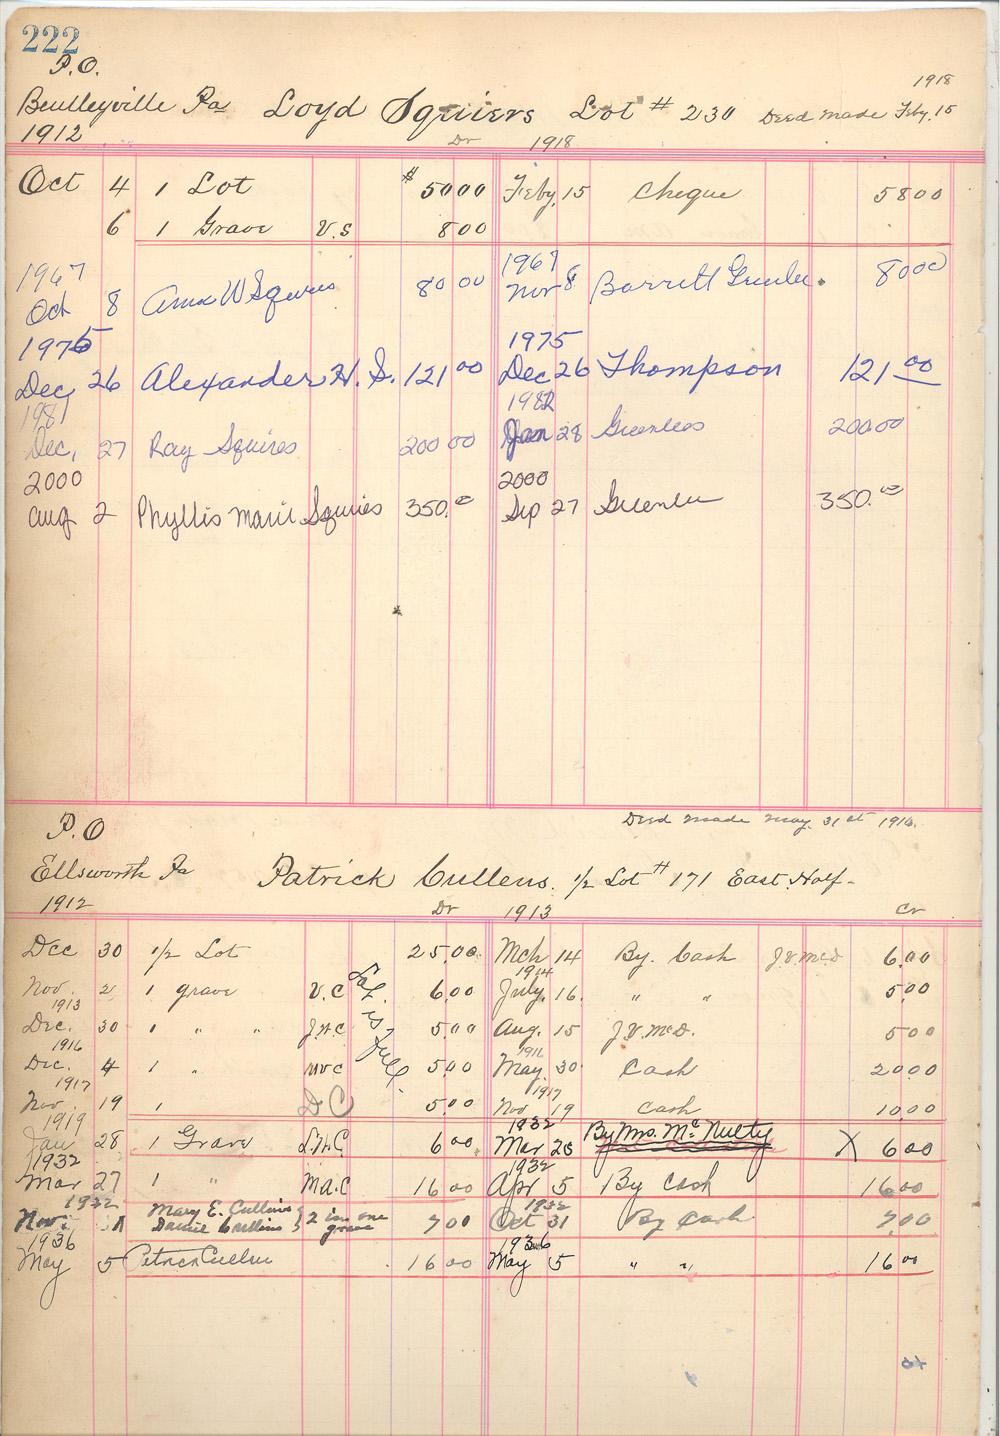 222
P.O.
Bentleyville Pa Loyd Squiers Lot # 230 Deed made Feby. 15 1918
1912 Dr 1918
Oct 4 1 Lot $ 50 00 Feby. 15 Cheque 58 00
6 1 Grave V.S 8 00
1967 1967
Oct 8 Anna W Squires 80 00 Nov 8 Barrett Greenlee. 80 00
1975 1975
Dec 26 Alexander H. S. 121 00 Dec 26 Thompson 121 00
1981 1982
Dec, 27 Ray Squires 200 00 Jan 28 Greenlees 200 00
2000 2000
Aug 2 Phyllis Marie Squires 350.00 Sep 27 Greenlee 350.00
P.O Deed made May. 31st 1916.
Ellsworth Pa Patrick Cullens. 1/2 Lot # 171 East Half-
1912 Dr 1913 Cr
Dec 30 1/2 Lot 25.00 Mch 14 By. Cash J.V.McD 6.00
1914
Nov. 2 1 grave V.C 6.00 July. 16. " " 5.00
1913
Dec. 30 1 " " J.H.C 5.00 Aug. 15 J.V.McD. 5 00
1916 1916
Dec. 4 1 " M V C 5.00 May. 30 Cash 20.00
1917 1917
Nov 19 1 D C 5.00 Nov 19 Cash 10.00
1919 1932
Jan 28 1 Grave L.H.C 6 00 Mar 28 By Mrs. McNulty X 6 00
1932 1932
Mar 27 1 " Ma.C 16 00 Apr 5 By Cash 16 00
1932 Mary E. Cullins 1932
Nov 1 Cullins 2 in one grave 7 00 Oct 31 By Cash 7.00
1936 1936
May 5 Patrick Cullen 16 00 May 5 " " 16 00